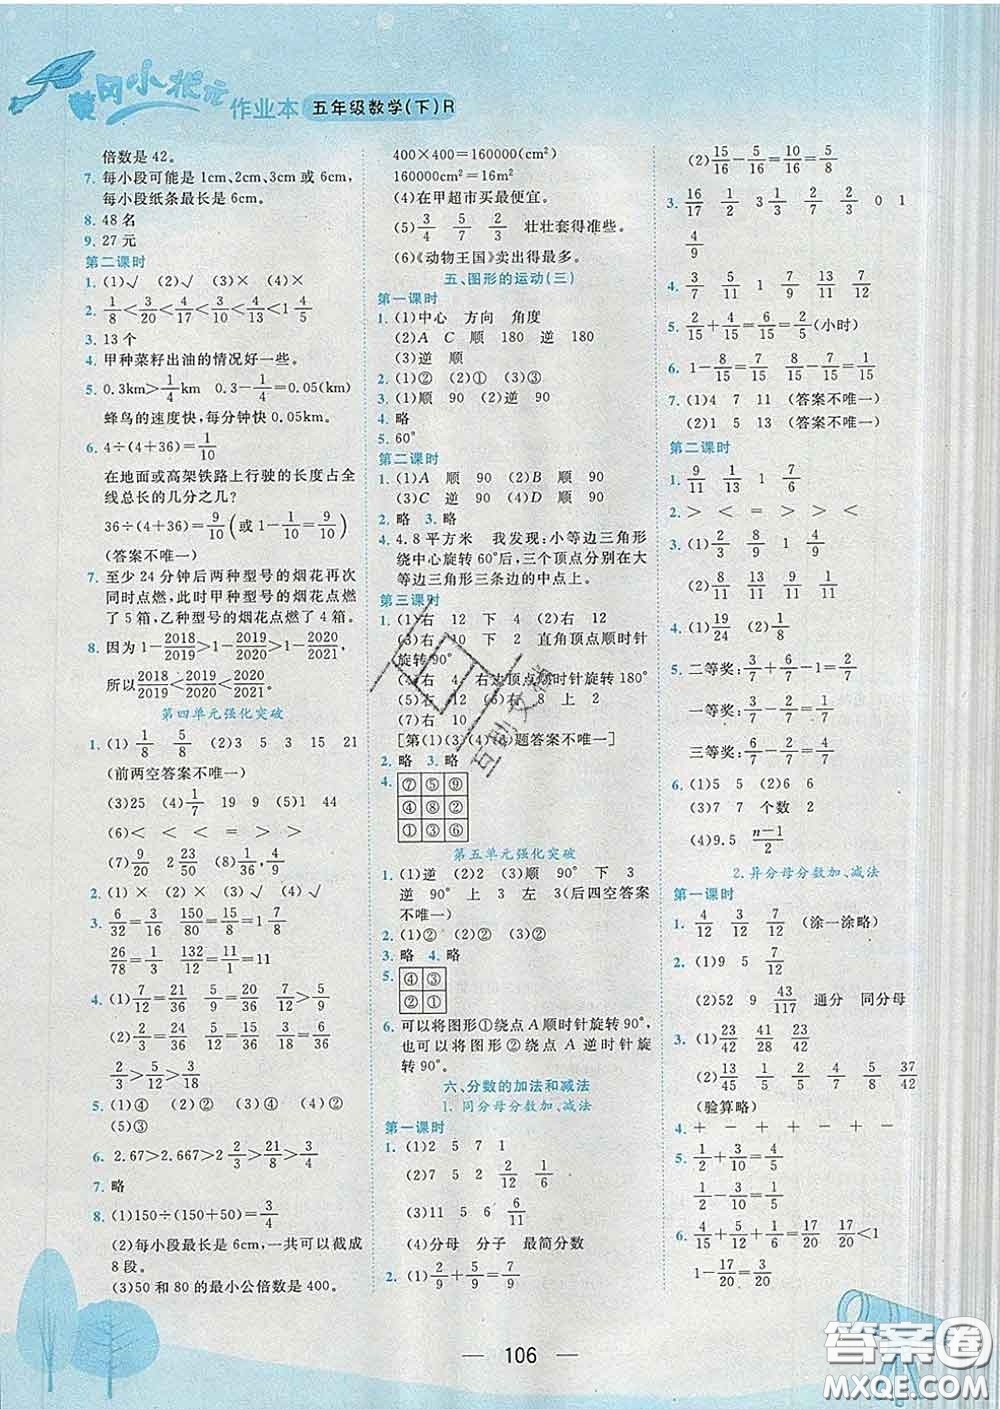 黄冈小状元
作业本 五年级数学(下)R
倍数是 42。
7. 每小段可能是 1cm、2cm、3cm 或 6cm，
每小段纸条最长是 6cm。
8. 48 名
9. 27 元
第二课时
1. (1)√ (2)√ (3)× (4)×
2. 1/8<3/20<4/17<4/9<11/20
3. 13 个
4. 甲种菜籽出油的情况好一些。
5. 0.3km>1/4km
蜂鸟的速度快，每分钟快 0.05km。
6. 4÷(4+36)=1/10
在地面或高架铁路上行驶的长度占全
线总长的几分之几?
36÷(4+36)=9/10(或 1-1/10=9/10)
(答案不唯一)
7. 至少 24 分钟后两种型号的烟花再次
同时点燃，此时甲种型号的烟花点燃
了 5 箱，乙种型号的烟花点燃了 4 箱。
8. 因为 1-2018/2019>1-2019/2020>1-2020/2021，
所以2018/2019<2019/2020<2020/2021。
第四单元强化突破
1. (1)1/8 5/8 (2)3 5 3 15 21
(前两空答案不唯一)
(3)25 (4)1/7 19 9 (5)44
(6)< < = > >
(7)9/20 2 2/500 9/50,9/30
2. (1)√ (2)× (3)× (4)√
3. 6/32=3/16 150/80=15/8=1 7/8
26/78=1/3 132/12=11/1=11
4. (1)7/12=21/36 5/9=20/36 7/12>5/9
(2)7/12=21/36 11/18=22/36 5/6=30/36
2/3>5/8>11/18>7/12
5. (1)④ (2)④ (3)② (4)②
(5)③
6. 2.67>2.667>2 2/3>21/8>3/2
7. 略
8. (1)150÷(150+50)=3/4
(2)每小段最长是 6cm，一共可以截成
8 段。
(3)50 和 80 的最小公倍数是 400。
400×400=160000(cm²)
160000cm²=16m²
(4)在甲超市买最便宜。
(5)3/4 5/7 2/3 壮壮套得准些。
(6)《动物王国》卖出得最多。
五、图形的运动(三)
第一课时
1. (1)中心 方向 角度
(2)A C 顺 180 逆 180
(3)逆 顺
2. (1)② (2)① (3)③
3. (1)顺 90 (2)逆 90
4. 略
5. 60°
第二课时
1. (1)A 顺 90 (2)B 顺 90
(3)C 逆 90 (4)D 顺 90
2. 略 3. 略
4. 4.8 平方米 我发现：小等边三角形
绕中心旋转 60°后，三个顶点分别在大
等边三角形三条边的中点上。
第三课时
1. (1)右 12 下 4 (2)右 12
(3)右 10 下 2 直角顶点顺时针
旋转 90°
(4)右 4 右左顶点顺时针旋转 180°
(5)右 12 (6)右 8 上 2
(7)右 10
[第(1)(3)(4)(6)题答案不唯一]
2. 略 3. 略
4. ⑦⑤⑨
④⑧②
①③⑥
第五单元强化突破
1. (1)逆 (2)2 (3)顺 90° 下 3
逆 90° 上 3 左 3(后四空答案
不唯一)
2. (1)① (2)②
3. 略 4. 略
5. ④③
②①
6. 可以将图形①绕点 A 顺时针旋转 90°，
也可以将图形②绕点 A 逆时针旋
转 90°。
六、分数的加法和减法
1. 同分母分数加、减法
第一课时
1. (1)2 5 7 1
(2)7 5 2 2/9
(3)11 5 6 6/11
(4)分母 分子 最简分数
2. (1)2/9+5/9=7/9
(2)15/16-5/16=10/16=5/8
3. 16/17 1/2 3 1/3 3/4 2/3 0 1
4/9
4. 3/7 5/11 1 3/13 5/7 8/11
5. 2/15+4/15=6/15=2/5(小时)
6. 1-7/15-1/15=7/15
7. (1)4 7 11 (答案不唯一)
(2)1 5 13 (答案不唯一)
第二课时
1. 9/11 1/13 1 7/6
2. > < = > > <
3. (1)2/3 8/9 1 4/11
(2)8/13 4/5 2/7 1/5
4. (1)19/24 (2)1/8
5. 二等奖：3/7+6/7-1=2/7
一等奖：3/7-2/7=1/7
三等奖：6/7-2/7=4/7
6. (1)5 (2)6 2
(3)7 7 个数 2
(4)9.5 (n-1)/2
2.异分母分数加、减法
第一课时
1. 4/12 3/12 7/12 (涂一涂略)
2. (1)9 5 7/12
(2)52 9 43/117 通分 同分母
3. (1)23/42 41/52 23/28 2/30
(2)22/15 11/12 38/45 4/75 37/42
(验算略)
4. + - + + - -
5. 1/2+3/10=4/5
6. 4/15+2/5+1/6=17/20 17/20<1
1-17/20=3/20
互动文档
106
答案圈
MXQE.COM